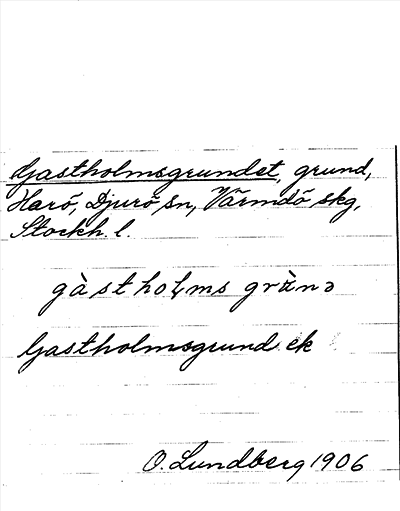 Gastholmsgrundet, grund,
Harö, Djurö sn, Värmdö skg,
Stockh. l.
gàstholms grùnə
Gastholmsgrund ek
O. Lundberg 1906